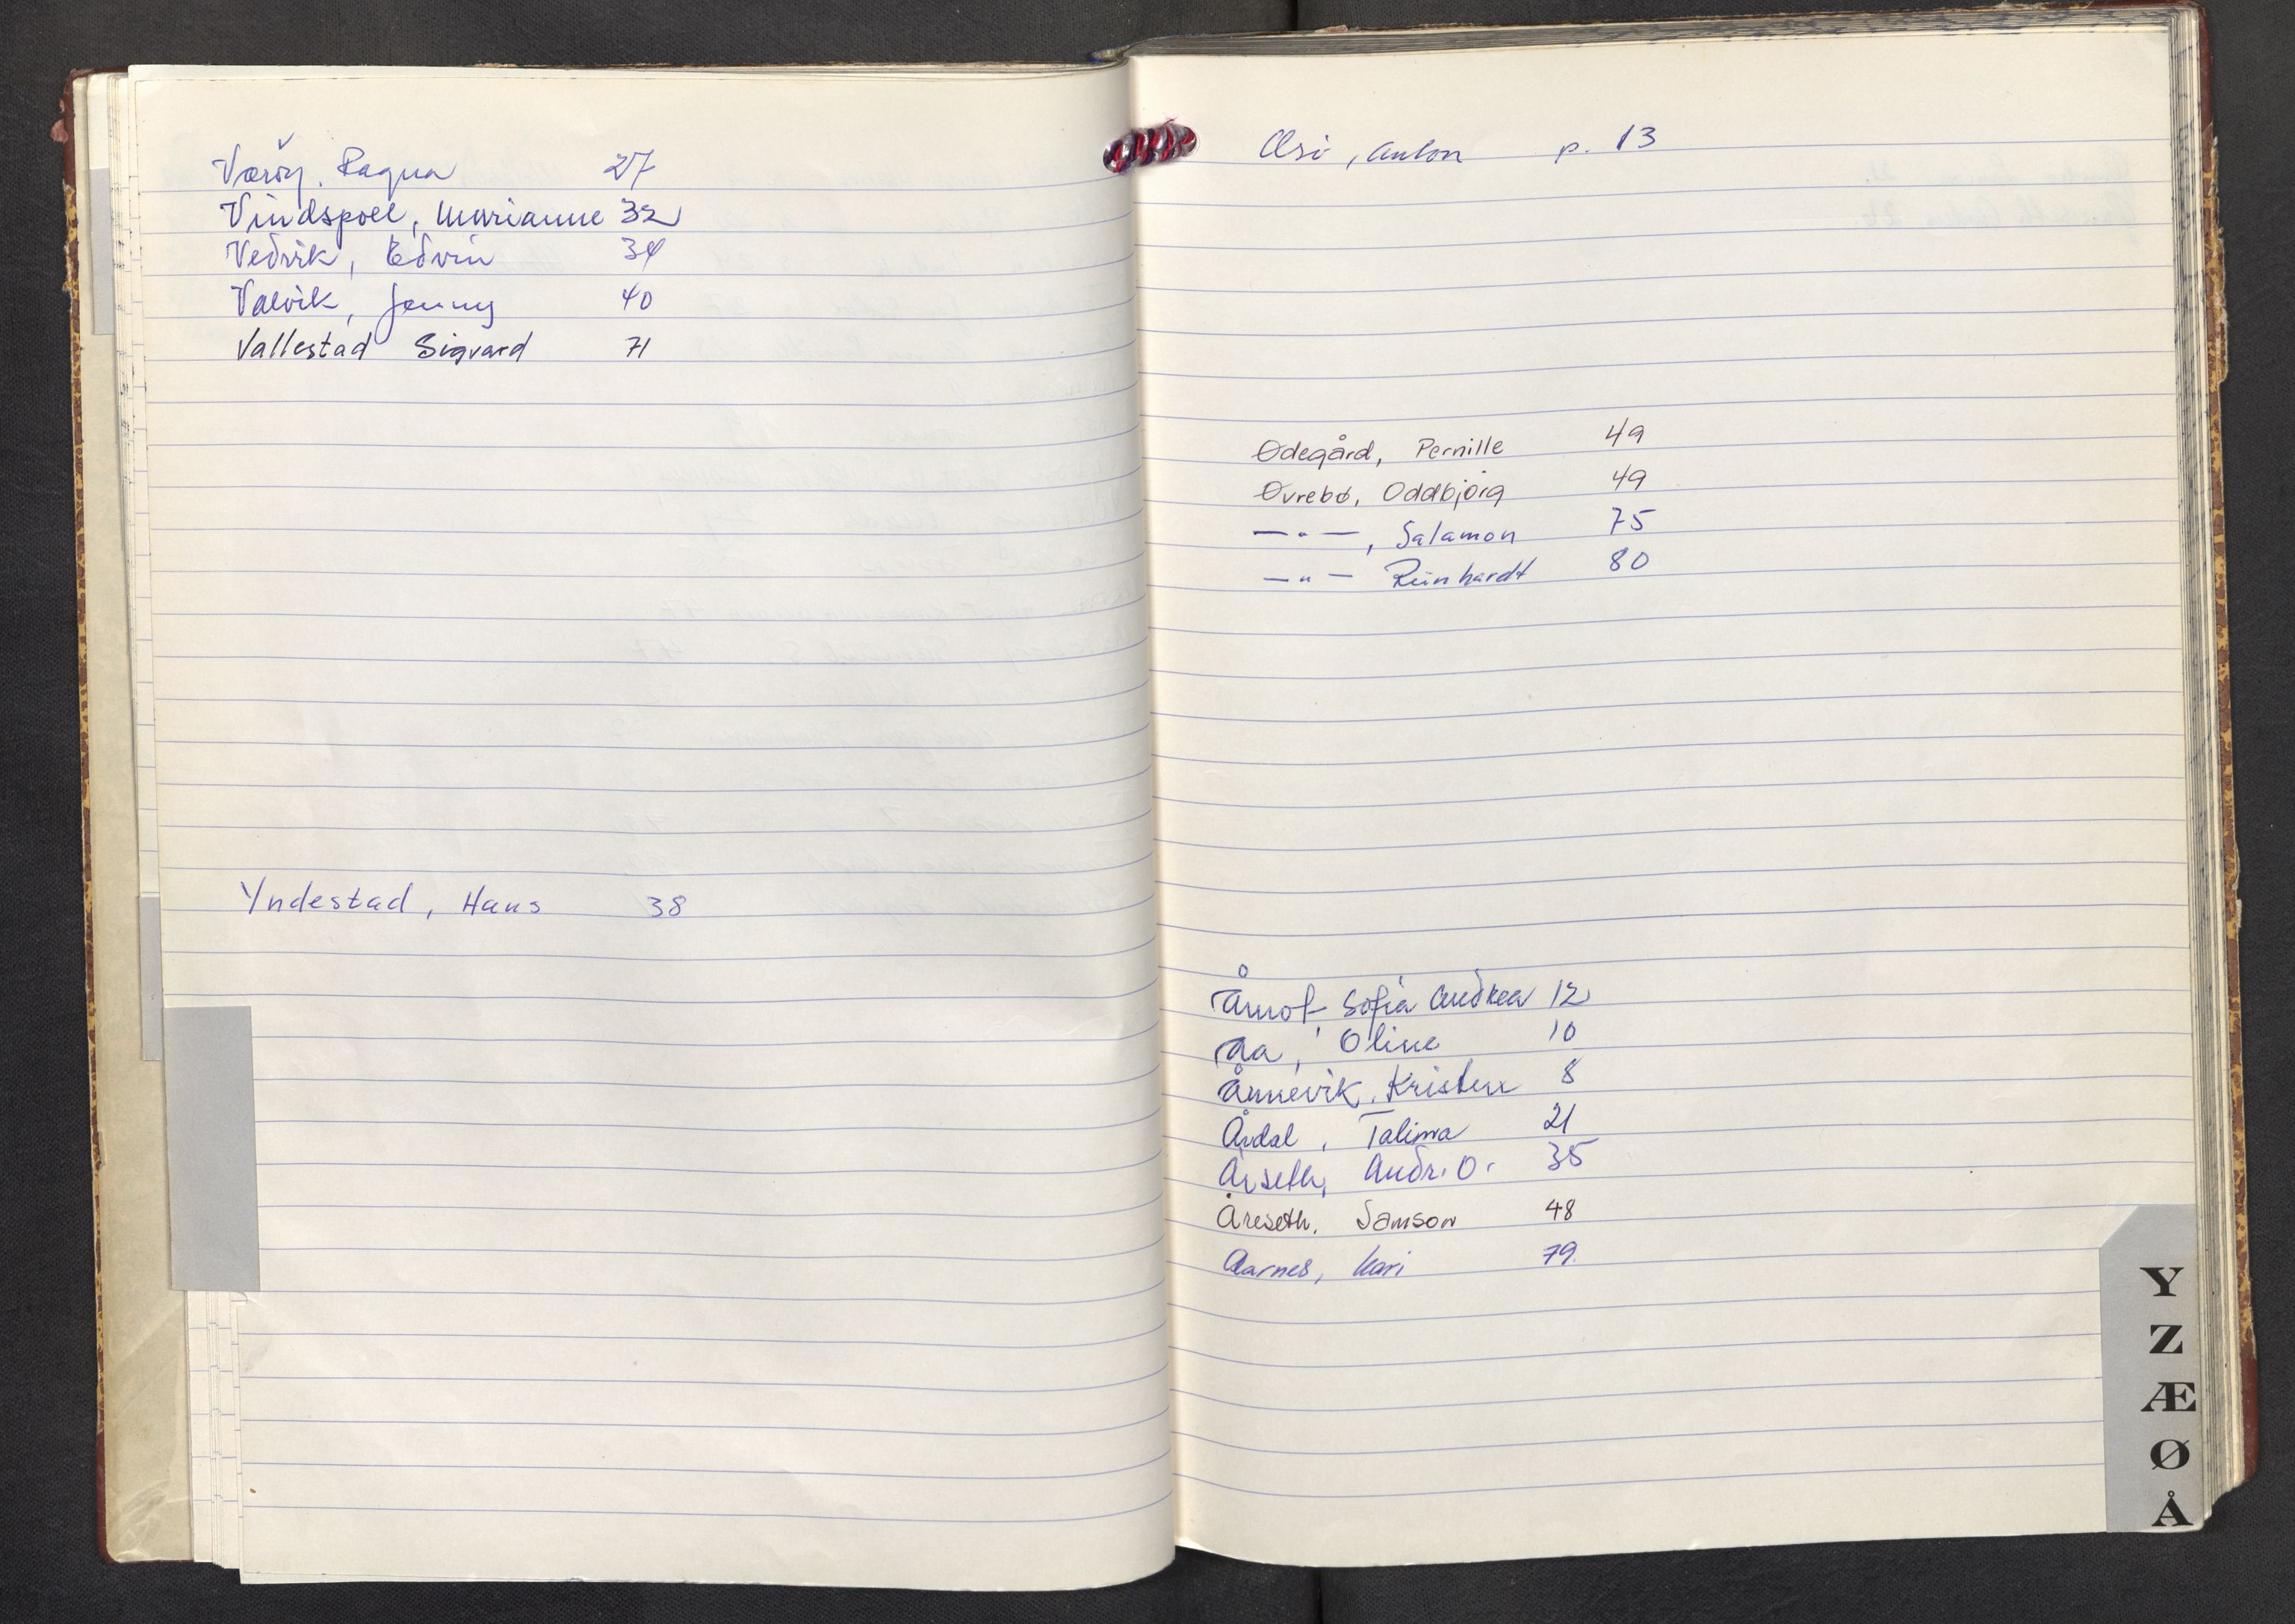 Værøy, Ragna 27
Vindspoll, Marianne 32
Vedvik, Edvin 34
Valvik, Jenny 40
Vallestad Sigvard 71
Yndestad, Hans 38
Anton p. 13
Ødegård, Pernille 49
Øvrebø, Oddbjørg 49
—"—, Salamon 75
—"— Reinhardt 80
Årnot, Sofia Andrea 12
Aa, Oline 10
Ånnevik, Kristen 8
Årdal, Talima 21
Årseth, Andr. O. 35
Åreseth. Samson 48
Aarnes, Kari 79.
Y
Z
Æ
Ø
Å